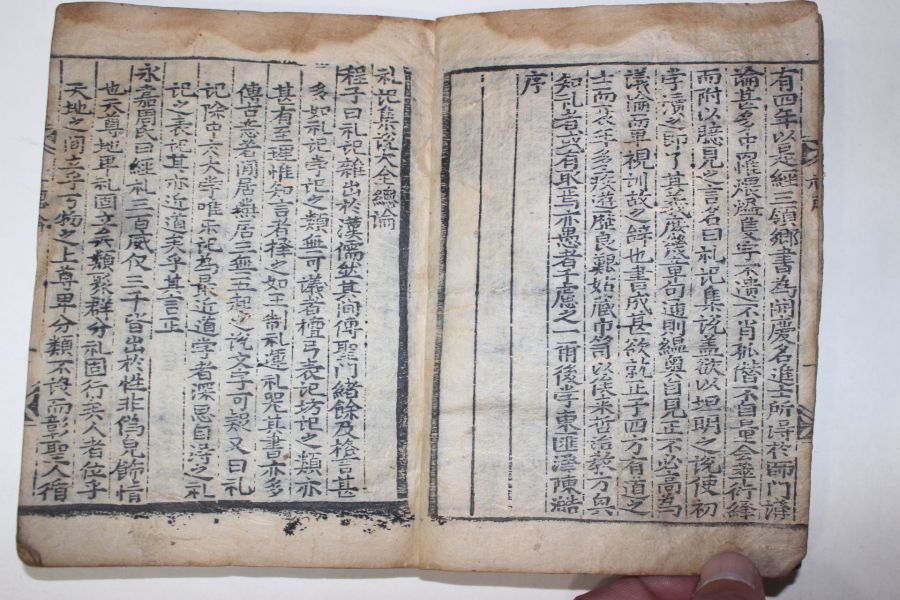 有四年以是經三領鄉書為開慶名進士所淂於師門講
論甚多中罹煨燼隻字不遺不肖孤僭不自量会萃衍繹
而附以臆見之言名曰礼記集說盖欲以坦明之說使初
学讀之即了其義庶㡬章句通則縕奧自見正不必高為
議論而卑視訓故之辞也書成甚欲就正于四方有道之
士而衰年多疾遊歷良艱姑藏巾笥以俟来哲治教方兴
知礼者或有取焉亦愚者千慮之一爾後学東匯泽陳澔
序
礼記集說大全總論
程子曰礼記雜出於漢儒然其间傳聖門緒餘及格言甚
多如礼記学記之類無可議者檀弓表記坊記之類亦
甚有至理惟知言者擇之如王制礼運礼器其書亦多
傳古意若閒居燕居三無五起之說文字可疑又曰礼
記除中庸大学唯乐記為最近道学者深思自淂之礼
記之表記其亦近道矣乎其言正
永嘉周氏曰經礼三百威仪三千皆出於性非偽皃飾情
也天尊地卑礼固立矣類聚群分礼固行矣人者位乎
天地之间立乎万物之上尊卑分類不設而彰聖人循